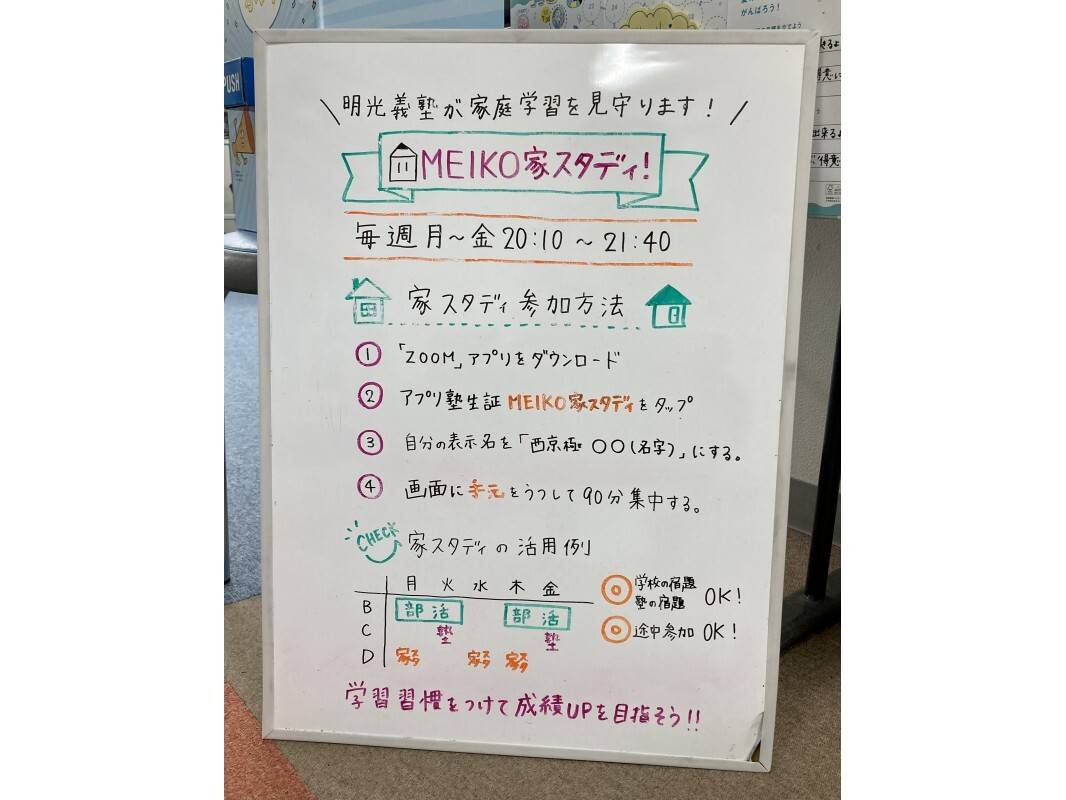 PUSH
がんばろう!
明光義塾が家庭学習を見守ります!
MEIKO家スタディ!
毎週月~金20:10~21:40
家スタディ参加方法
① 「ZOOM」アプリをダウンロード
② アプリ塾生証MEIKO家スタディをタップ
③ 自分の表示名を「西京極 〇〇(名字)」にする。
④ 画面に手元をうつして90分集中する。
CHECK 家スタディの活用例
月 火 水 木 金
B 部活 部活
C 塾 塾
D 家スタ 家スタ 家スタ
◎ 学校の宿題
塾の宿題 OK!
◎ 途中参加 OK!
学習習慣をつけて成績UPを目指そう!!